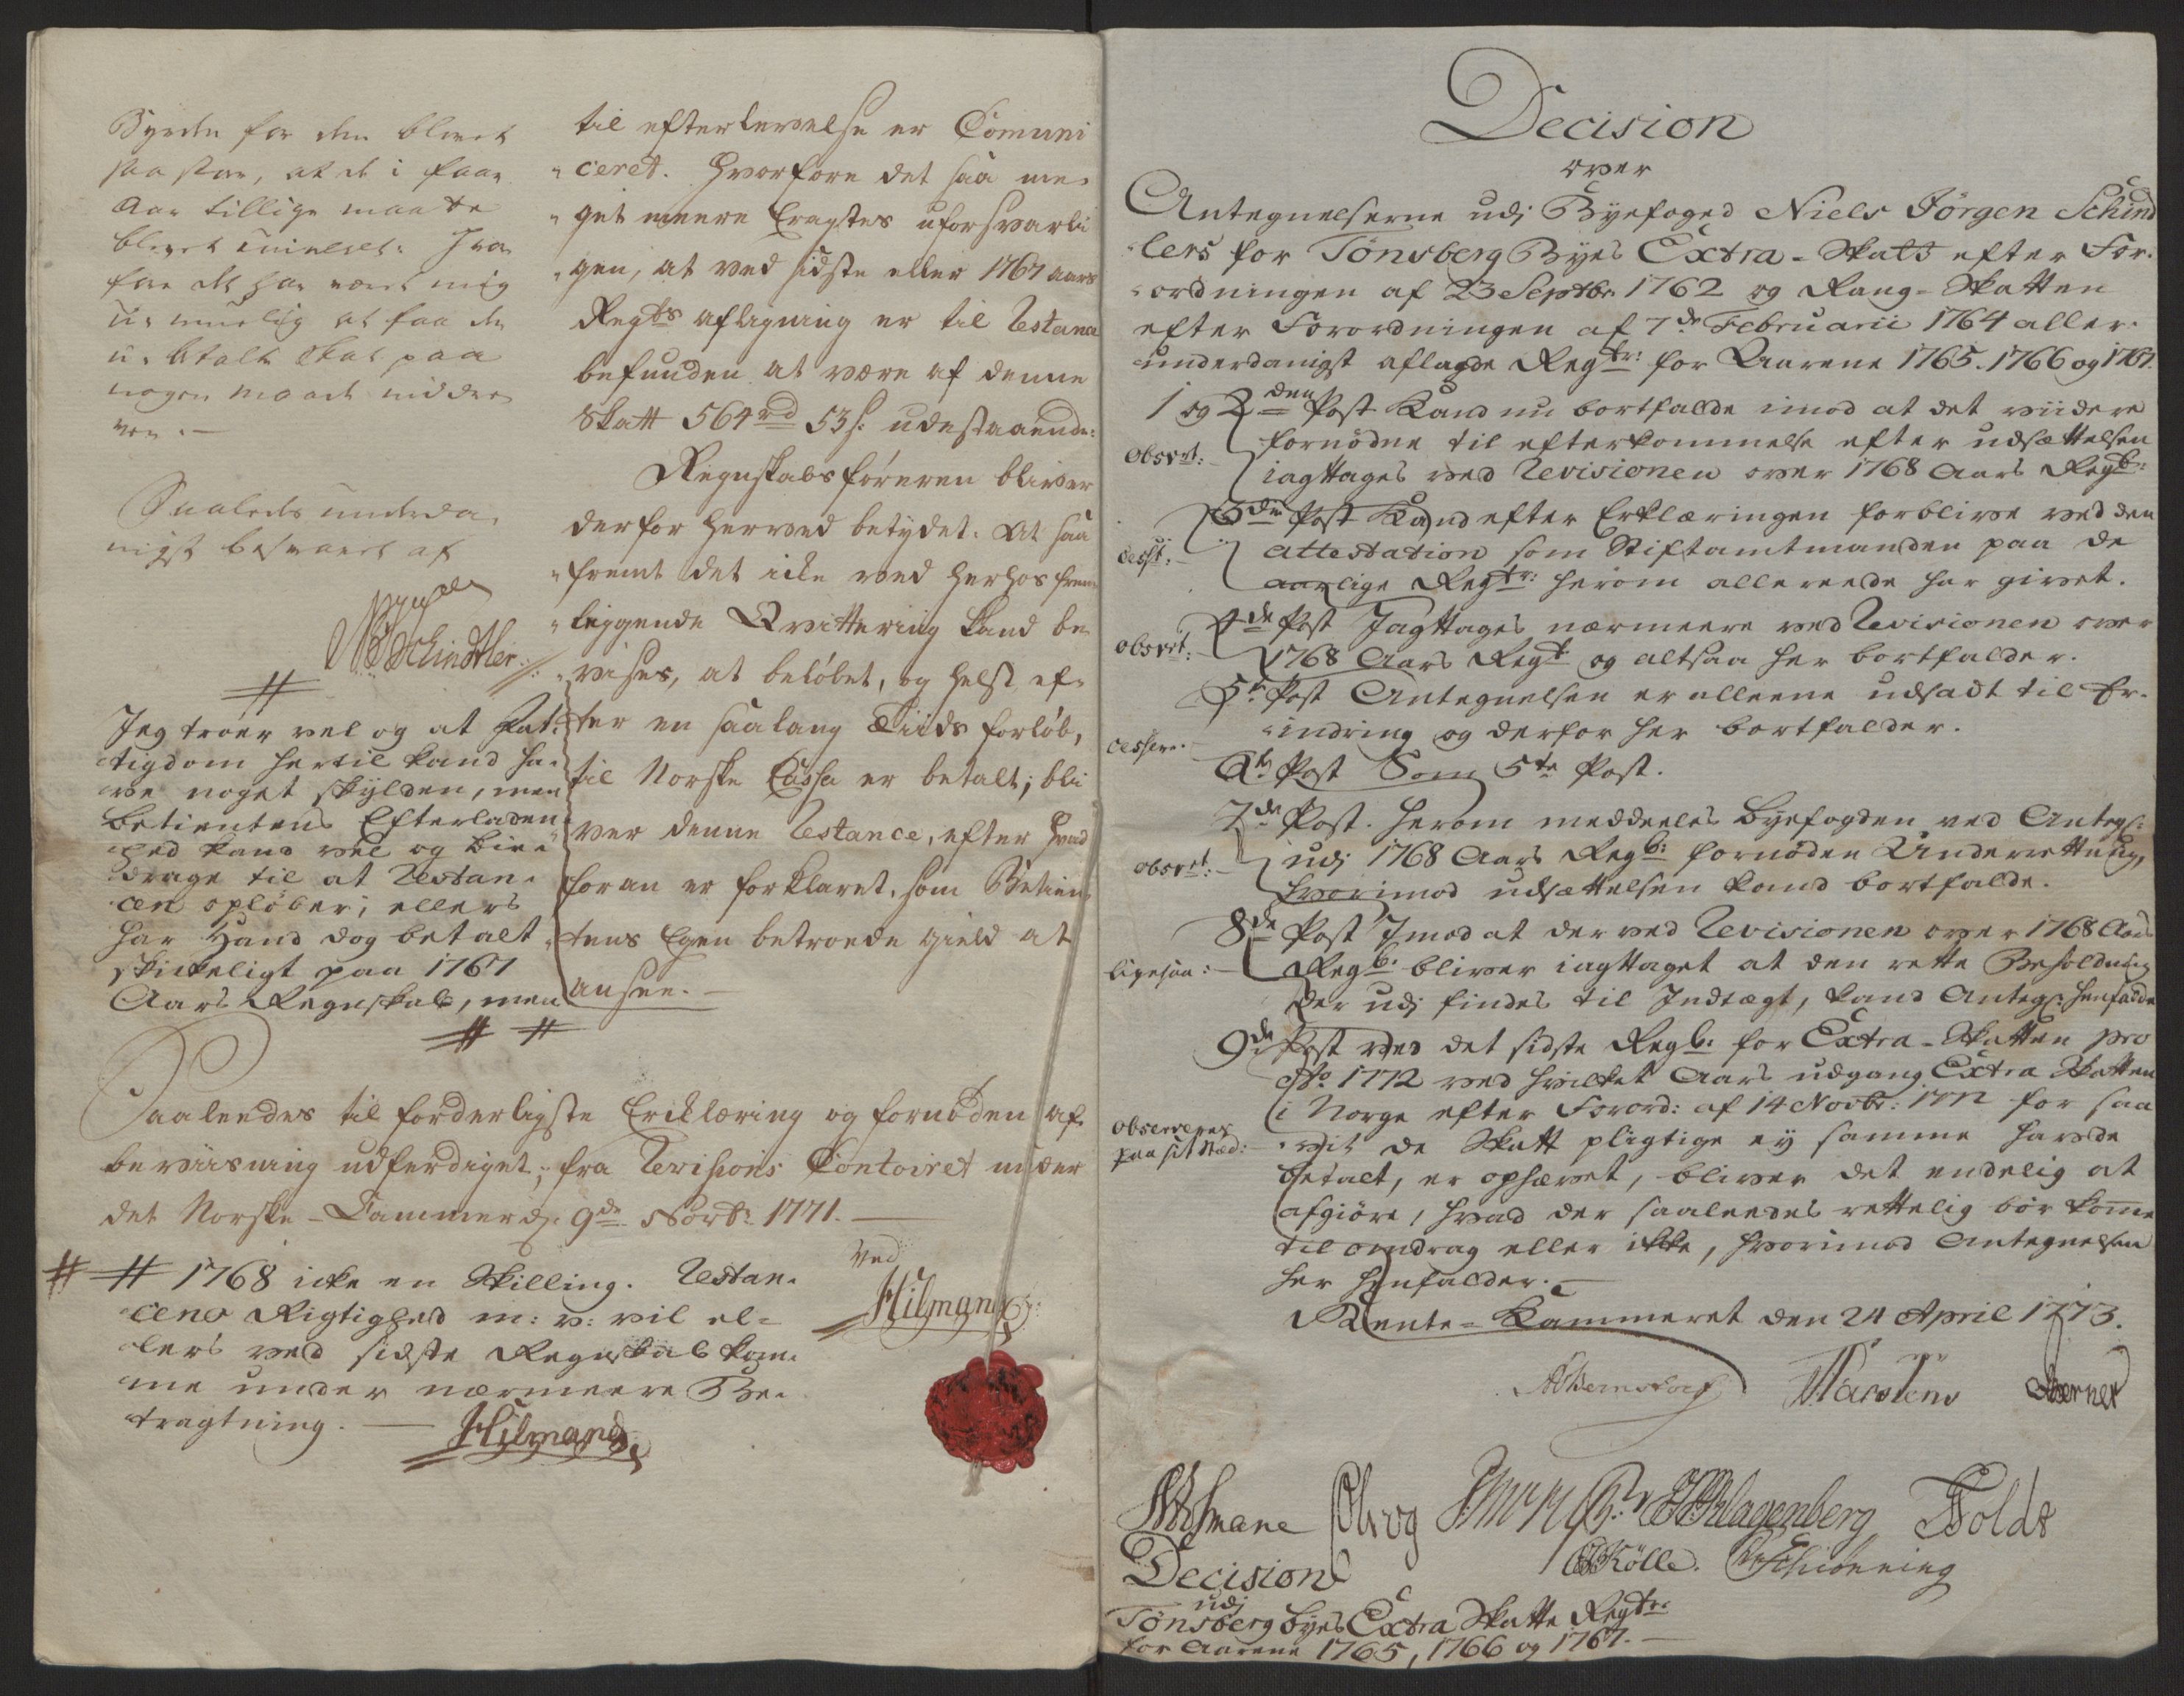 Byrden for dem blevet
saa stor, at de i faar
Aar tillige maatte
blevet
for det har været mig
u-muelig at faa de
u-betalte Skat paa
nogen maade inddre
ven.-
Saaledes underda-
nigst besvaret af
NJSchindtler:
#
Jeg troer vel og at Fat-
tigdom hertil kand ha-
ve noget skylden, men
Betientens Efterladen-
hed kand vel og bi-
drage til at Restan-
cen opløber; ellers
har Hand dog betalt
skikkeligt paa 1767
Aars Regnskab, men
# #
til efterlevelse er Comuni
ceret. Hvorfore det saa me-
get meere Eragtes uforsvarli
gen, at ved sidste eller 1767 aars
Regbs aflægning er til Restance
befunden at være af denne
Skatt 564 rd 53 s. udestaaende:
Regnskabsføreren bliver
derfor herved betydet: At saa
fremt det icke ved herhos frem
leggende Qvittering kand be
vises, at beløbet, og helst ef-
ter en saa lang Tiids forløb,
til Norske Cassa er betalt; bli
ver denne Restance, efter hvad
foran er forklaret, som Betien
tens Egen betroede gield at
ansee.-
Saaleedes til forderligste Ercklæring og fornøden af-
beviisning udferdiget; fra Revisions Contoiret under
det Norske-Cammer d. 9de Novbr 1771.-
Ved
Hilmand
# # 1768 icke en Skilling. Restan-
cens Rigtighed m: v: vil el-
lers ved sidste Regnskab kom-
me under nærmeere Be-
tragtning.-
Hilmand
Decision
over
Antegnelserne udj Byefoged Niels Jörgen Schind
lers for Tönsberg Byes Extra-Skatt efter For-
ordningen af 23 Septbr. 1762 og Rang-Skatten
efter Forordningen af 7de Februarii 1764 aller-
underdanigst aflagde Regbr: for Aarene 1765. 1766 og 1767.
1 og 2den Post Kand nu bortfalde imod at det viidere
fornødne til efterkommelse efter udsættelsen
iagttages ved Revisionen over 1768 Aars Regb:
Obsvrt:
3de Post Kand efter Erklæringen forblive ved den
attestation som Stiftamtmanden paa de
aarlige Regbr: herom allereede har givet.
cesst:
4de Post Jagttages nærmeere ved Revisionen over
1768 Aars Regb og altsaa her bortfalder.
Obsvrt:
5te Post Antegnelsen er alleene udsadt til Er-
indring og derfor her bortfalder.
cesserer.
6te Post Som 5te Post.
7de Post. Herom meddeeles Byefogden ved Antegs:
udj 1768 Aars Regb: fornøden Underrettning,
hvorimod udsættelsen kand bortfalde.
obsvrt:
8de Post Imod at der ved Revisionen over 1768 Aars
Regb: bliver iagttaget at den rette Beholdning
der udj findes til Indtægt, kand Antegs: henfalde
ligesaa:
9de Post Ved det sidste Regb: for Extra-Skatten pro
Ao 1772 ved hvilket Aars udgang Extra Skatten
i Norge efter Forord: af 14 Novbr: 1772 for saa
vit de Skatt pligtige ey samme havde
betalt, er ophævet, bliver det endelig at
afgiøre, hvad der saaleedes rettelig bör komme
til omdrag eller ikke, hvorimod Antegnelsen
her henfalder.-
observeres
paa sit Stæd:
Rente-Kammeret den 24 April 1773.
Carstens
Berner
Klagenberg
Holdt
Kölle.
Schiønning
Decision
udj
Tönsberg Byes Extra Skatte Regbr:
for Aarene 1765, 1766 og 1767.-